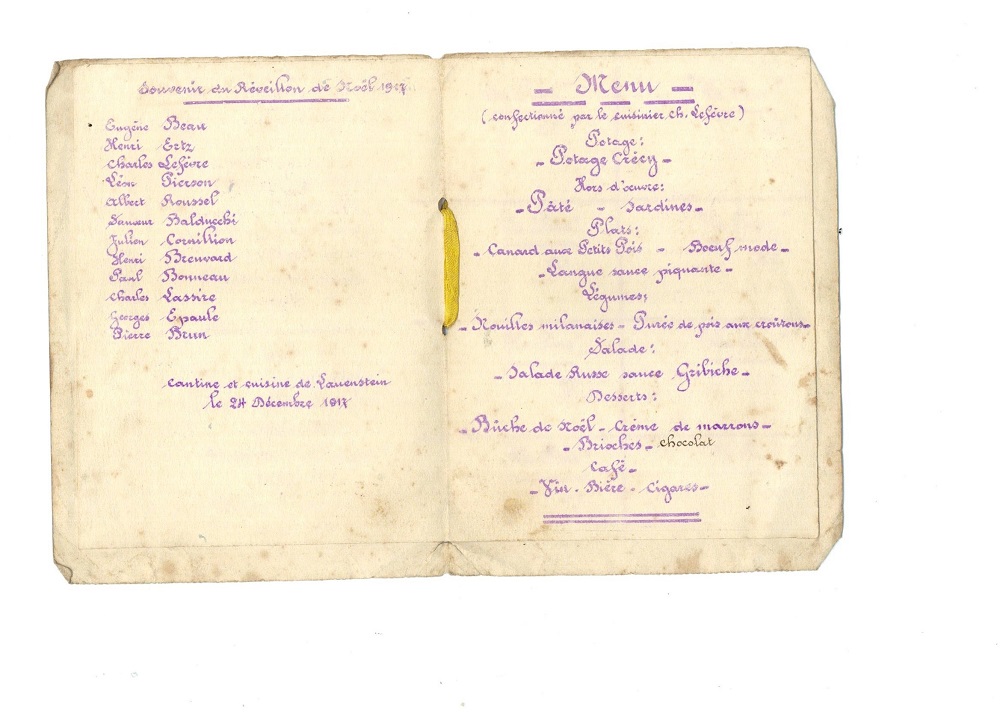 Souvenir du Réveillon de Noël 1917.
Eugène Beau
Henri Ertz
Charles Lefèvre
Léon Pierson
Albert Roussel
Sauveur Balducchi
Julien Cornillion
Henri Breuvard
Paul Bonneau
Charles Lassire
Georges Epaule
Pierre Brun
Cantine et cuisine de Lauenstein
le 24 Décembre 1917
- Menu -
(confectionné par le cuisinier Ch. Lefèvre)
Potage:
- Potage Crécy -
Hors d'œuvre:
- Pâté - Sardines -
Plats:
- Canard aux Petits Pois - Boeuf mode -
- Langue sauce piquante -
Légumes:
- Nouilles milanaises - Purée de pois aux croûtons -
Salade:
- Salade Russe sauce Gribiche -
Desserts:
- Bûche de Noël - Crème de marrons -
- Brioches - chocolat
Café -
- Vin - Bière - Cigares -